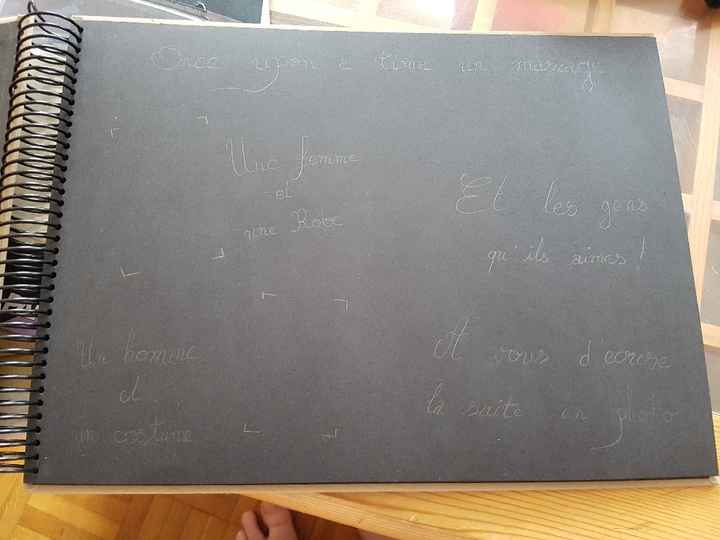 Once upon a time un mariage
Une femme
et
une Robe
Et les gens
qu'ils aimes !
Un homme
et
un costume
A vous d'ecrire
la suite en photo